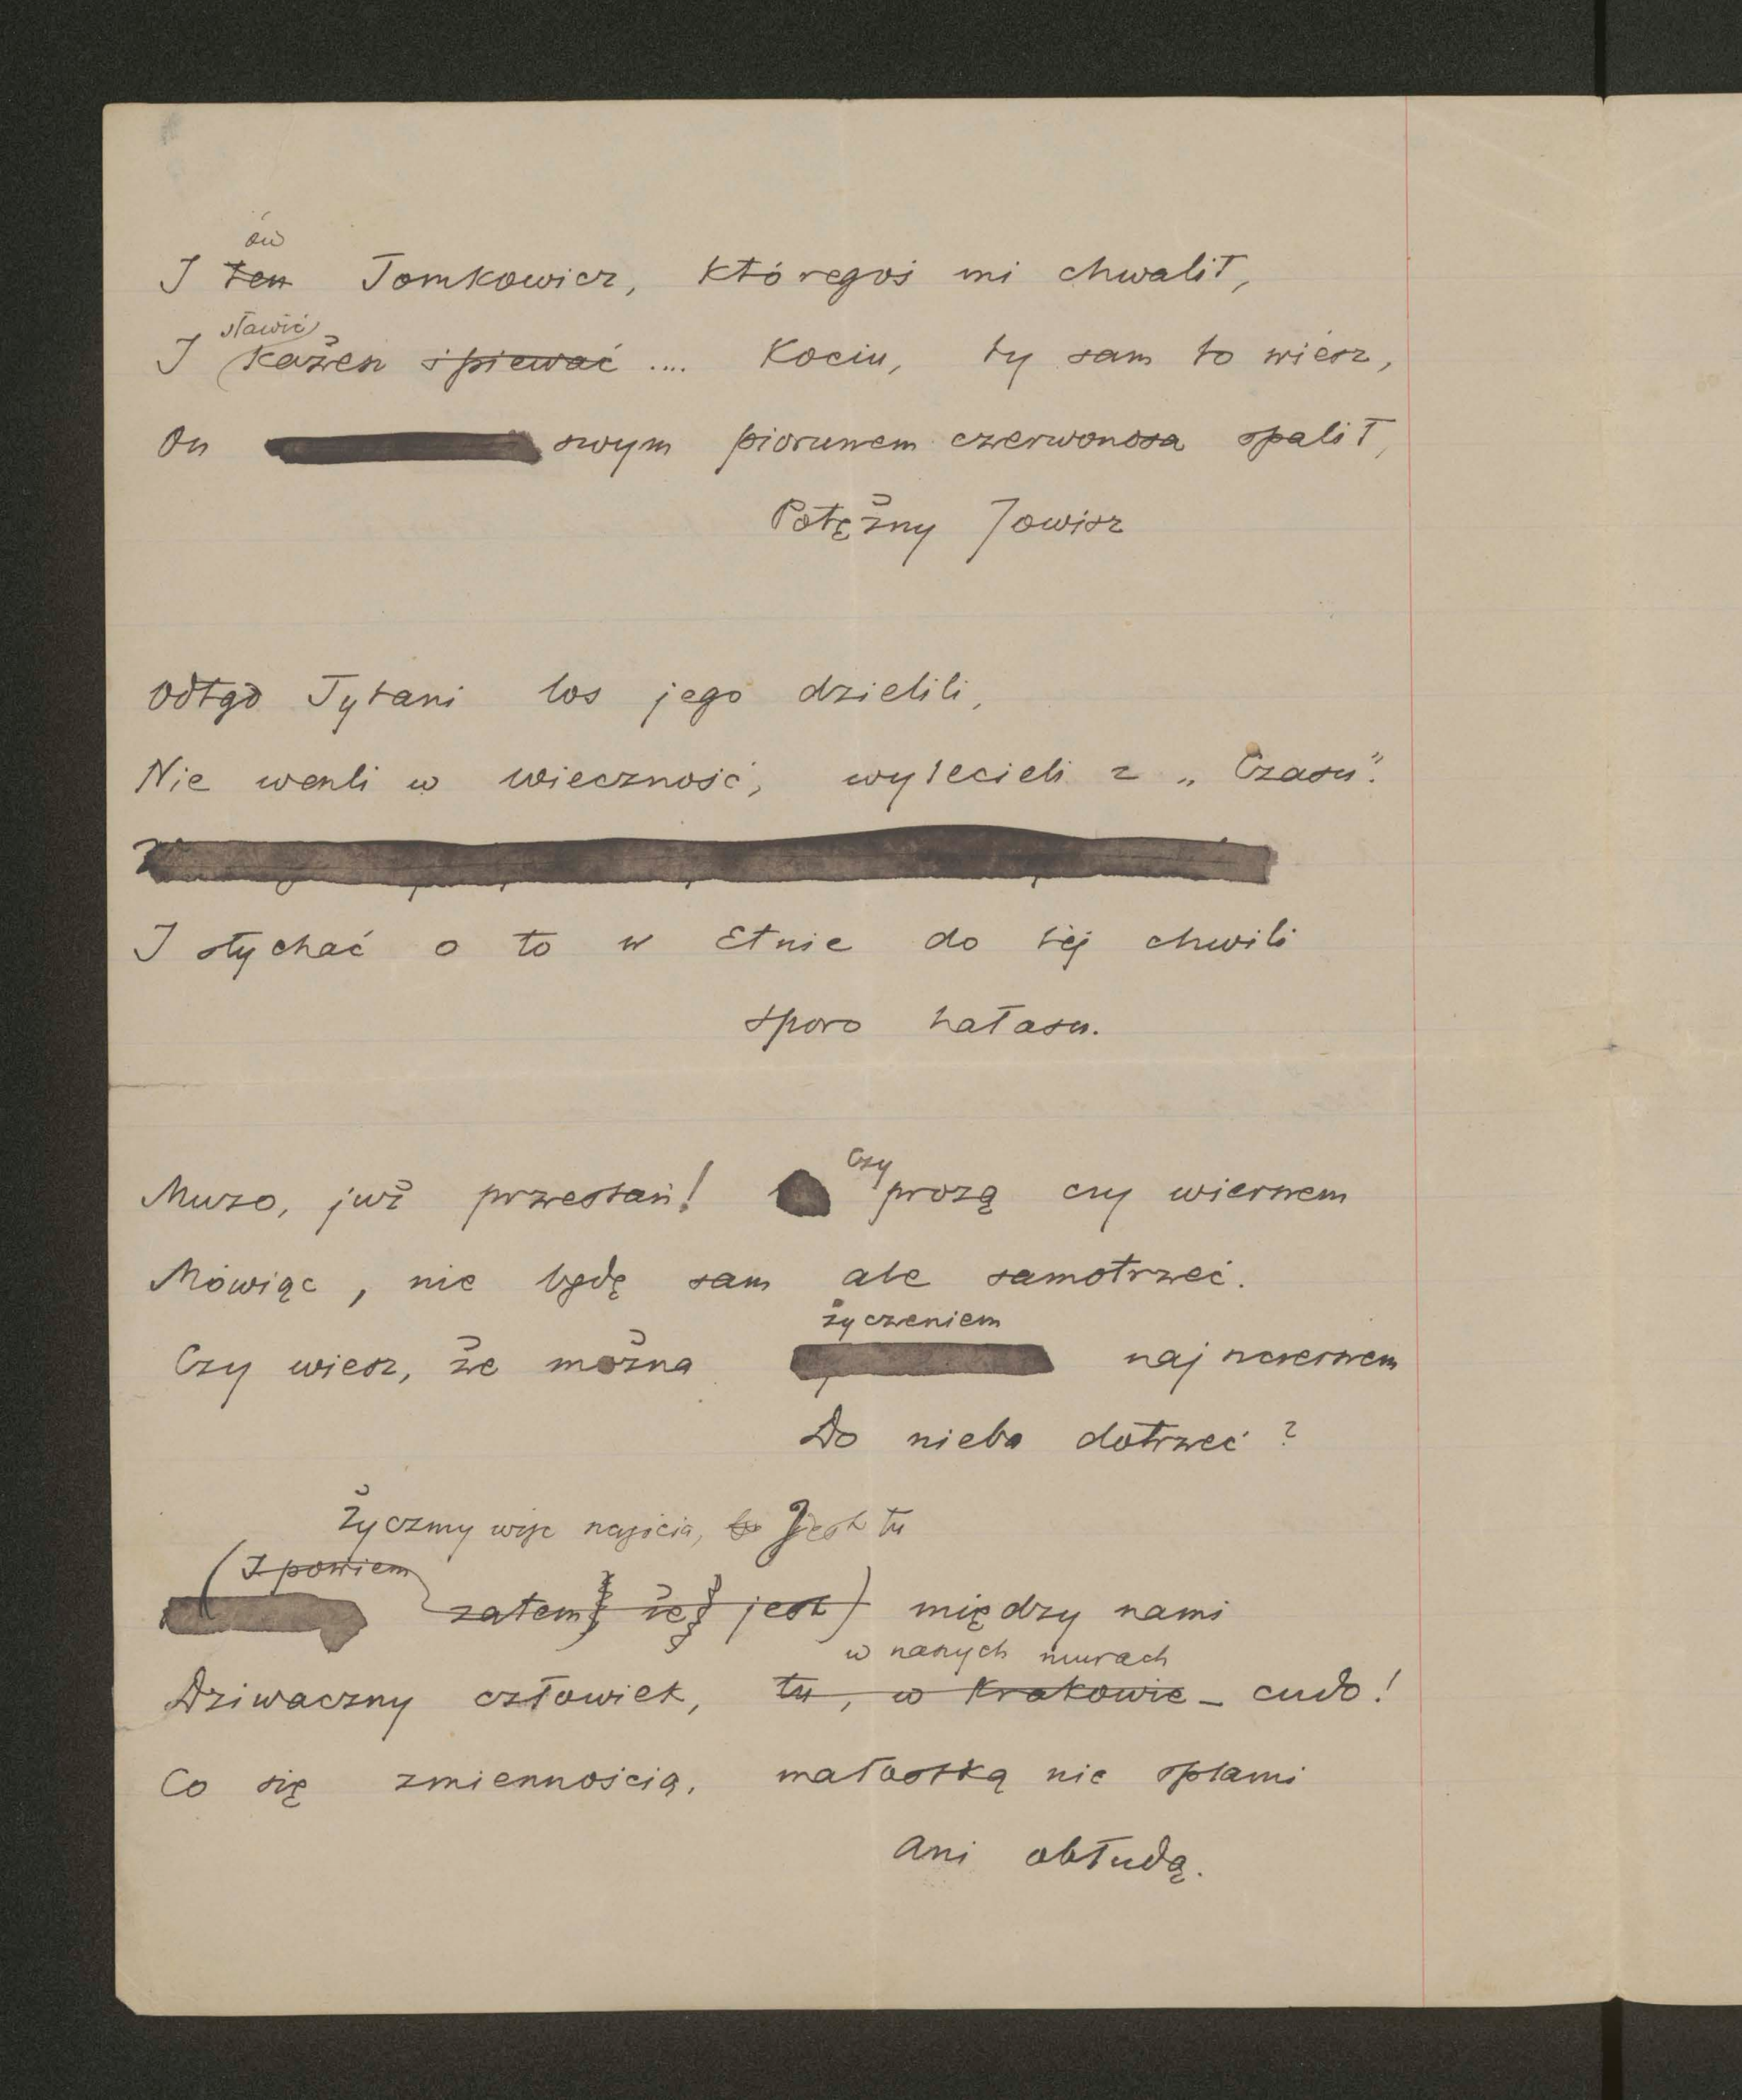 ów
I ten Tomkowicz, któregoś mi chwalił,
sławić
I każesz śpiewać .... Kociu, ty sam to wiesz,
On swym piorunem czerwonosa spalił,
Potężny Jowisz
Odtąd Tytani los jego dzielili,
Nie weszli w wieczność, wylecieli z „Czasu".
I słychać o to w Etnie do tej chwili
sporo hałasu.
Czy
Muzo, już przestań! prozą czy wierszem
Mówiąc, nie będę sam ale samotrzeć.
życzeniem
Czy wiesz, że można najszczerszem
Do nieba dotrzeć?
Życzmy więc Jest tu
(I powiem
zatem że jest) między nami
w naszych murach
Dziwaczny człowiek, tu, w Krakowie – cudo!
Co się zmiennością, małostką nie splami
Ani obłudą.